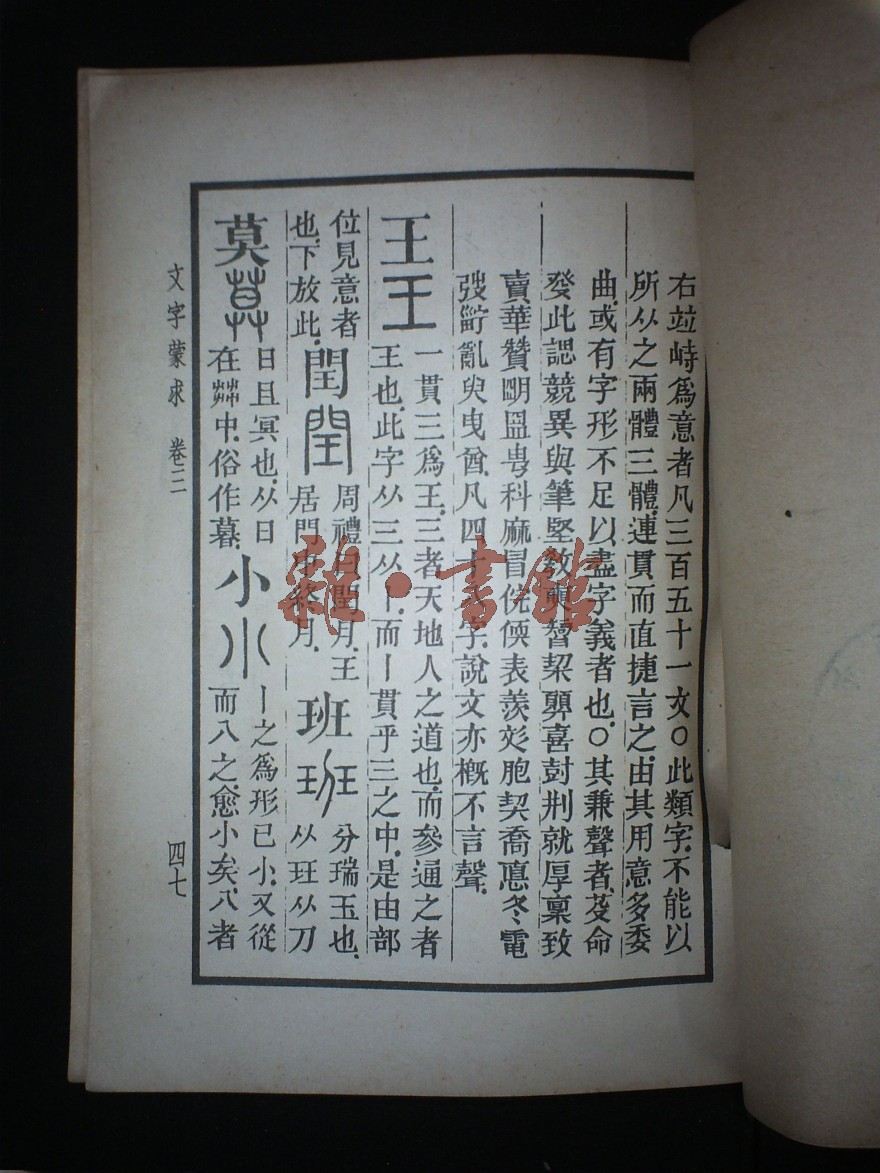 右竝峙爲意者凡三百五十一文○此類字.不能以
所从之兩體三體.連貫而直捷言之.由其用意多委
曲或有字形不足以盡字義者也○其兼聲者.芟命
癹此競異與筆堅敎奭栔喜尌刑就厚稟致
賣華贊朙科麻冒表羨彣胞契喬悳冬電
弢亂臾曳酋.凡四十字.說文亦槪不言聲.
王王
一貫三爲王.三者天地人之道也.而參通之者
王也.此字从三从丨.而丨貫乎三之中.是由部
位見意者
也.下放此.
閏閏
周禮曰閏月.王
居門中終月.
班班
分瑞玉也.
从玨从刀
莫莫
日且冥也.从日
在茻中.俗作暮.
小小
丨之爲形已小.又從
而八之.愈小矣.八者
文字蒙求 卷三
四七
雜·書館